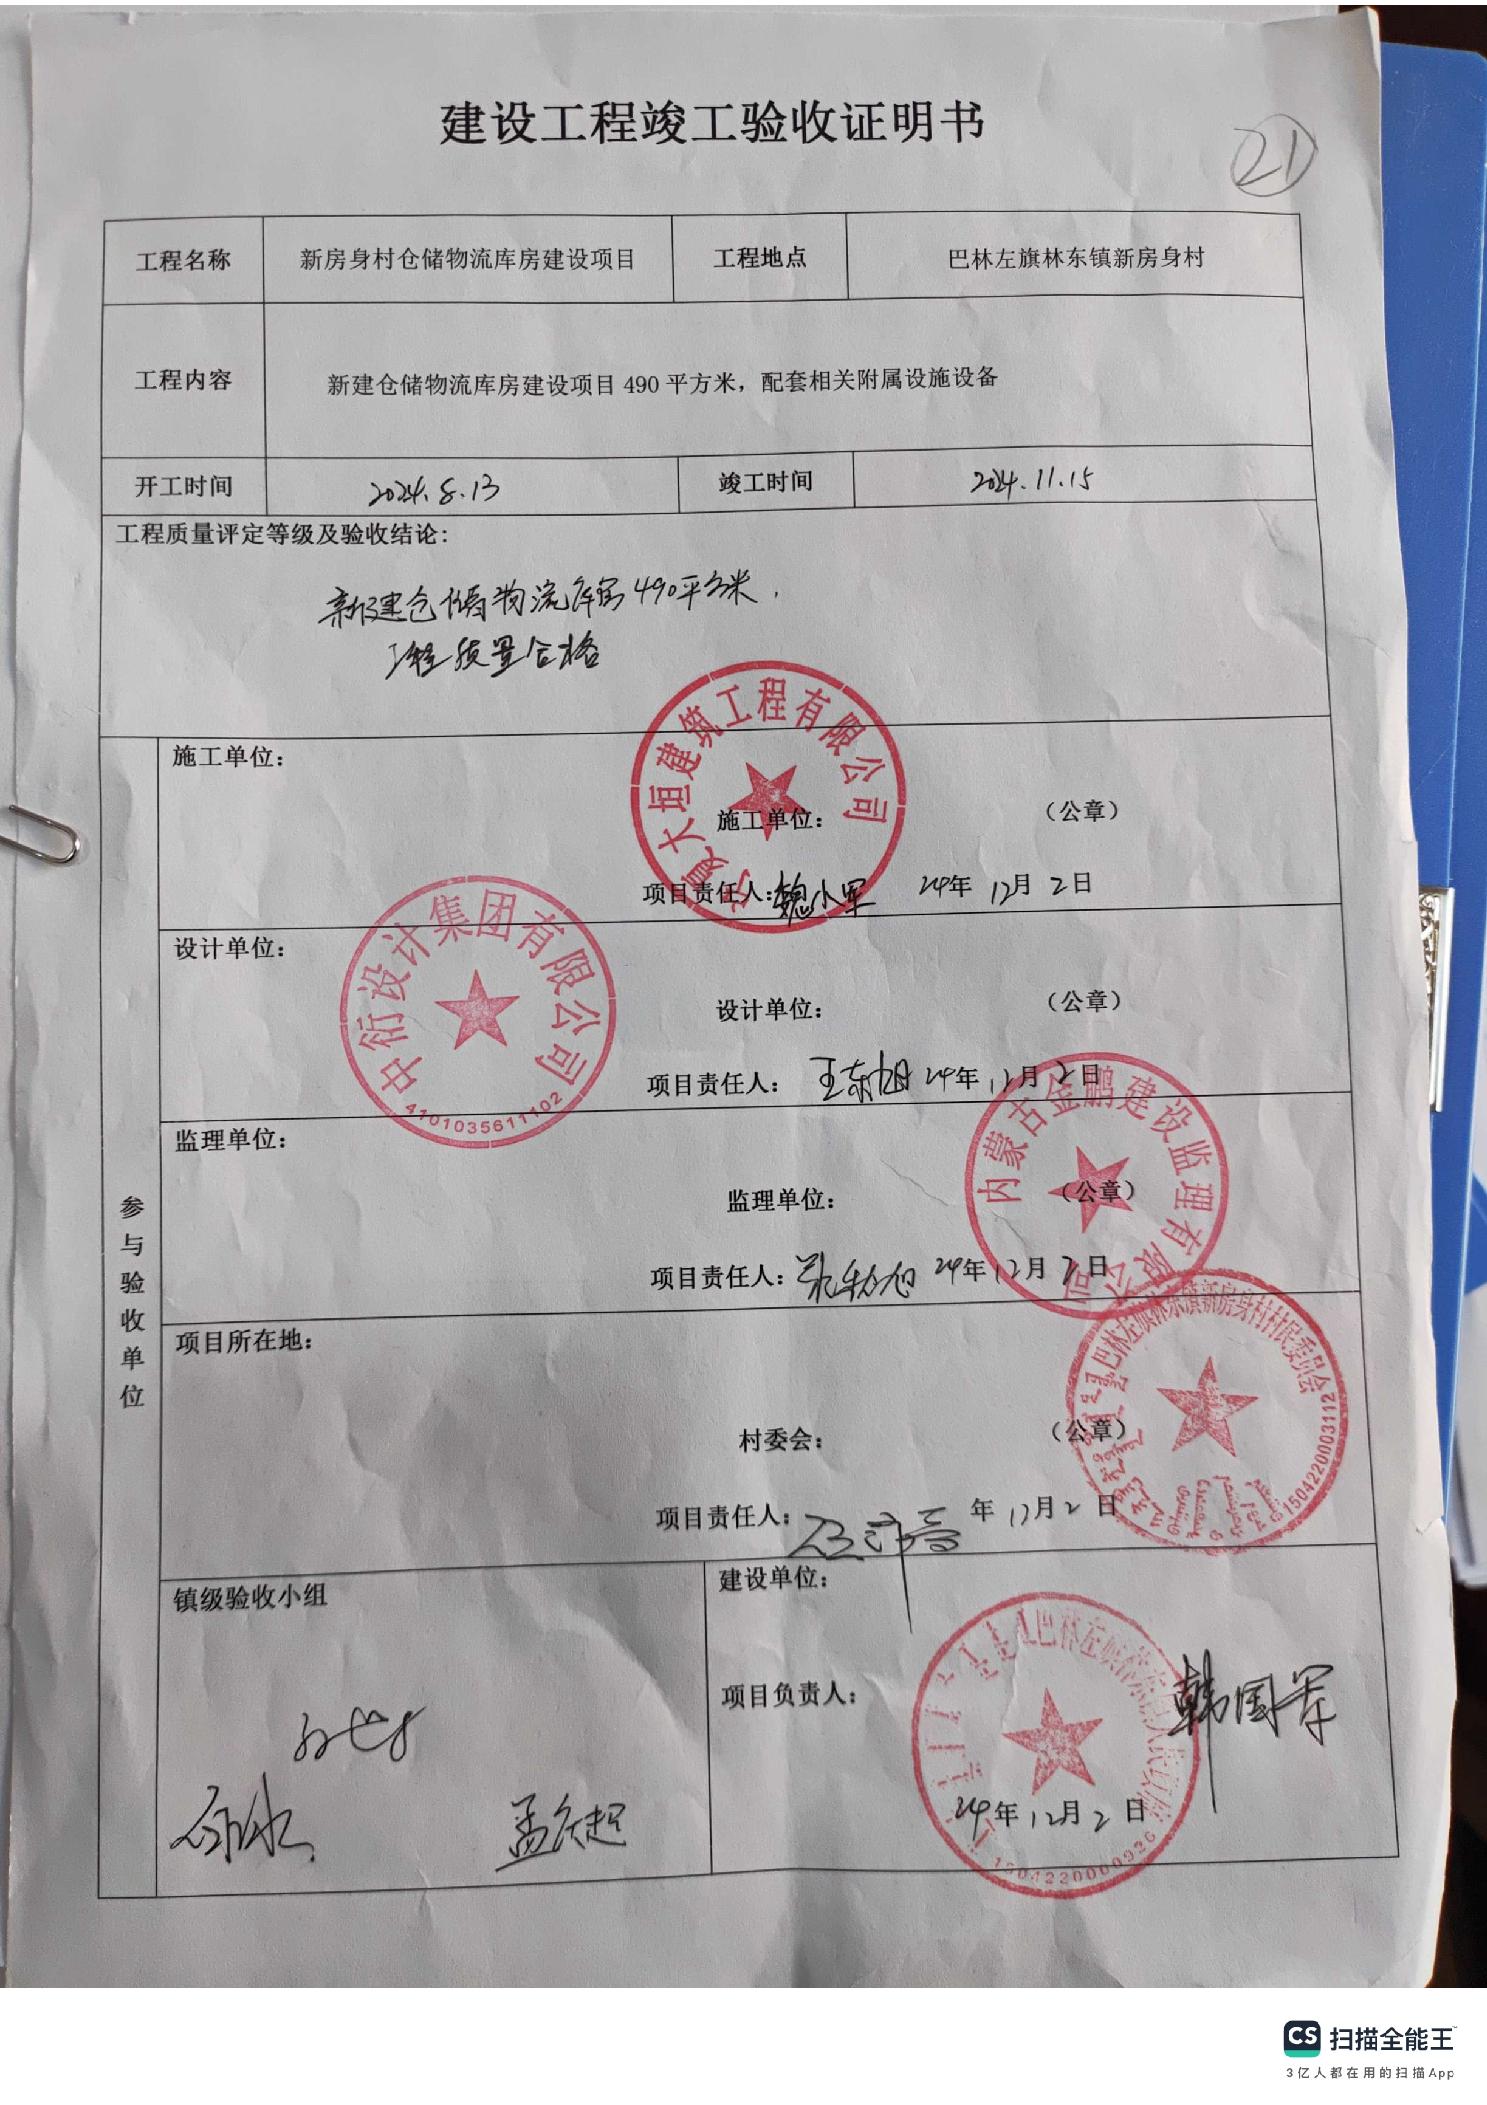 建设工程竣工验收证明书
21
工程名称 新房身村仓储物流库房建设项目 工程地点 巴林左旗林东镇新房身村
工程内容 新建仓储物流库房建设项目 490 平方米，配套相关附属设施设备
开工时间 2024.8.13 竣工时间 2024.11.15
工程质量评定等级及验收结论：
新建仓储物流库房490平方米，
工程质量合格
参与验收单位
施工单位：
宁夏大垣建筑工程有限公司
施工单位： （公章）
项目责任人：魏小军 24年 12月 2日
设计单位：
中衍设计集团有限公司
4101035611102
设计单位： （公章）
项目责任人： 王东旭 24年 12月 2日
监理单位：
内蒙古金鹏建设监理有限公司
监理单位： （公章）
项目责任人： 24年 12月 2日
项目所在地：
巴林左旗林东镇新房身村村民委员会
1504220003112
村委会： （公章）
项目责任人： 年 12月 2日
镇级验收小组
孟庆超
建设单位：
巴林左旗林东镇人民政府
项目负责人： 韩国军
24年 12月 2日
1504220000926
CS 扫描全能王
3亿人都在用的扫描App